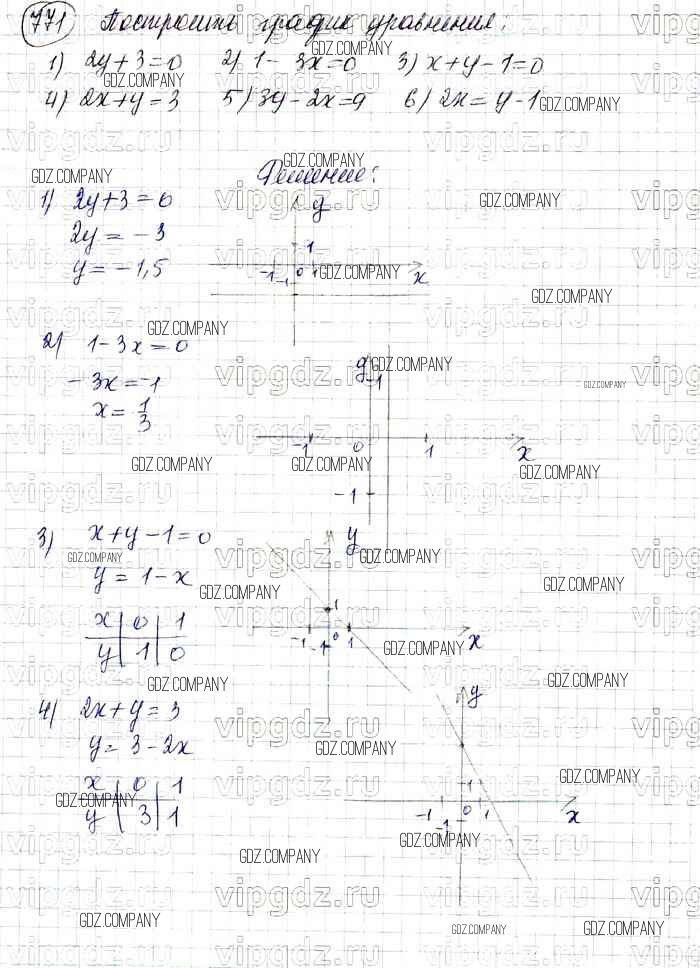 771 Построить график уравнения:
1) 2y+3=0 2) 1-3x=0 3) x+y-1=0
4) 2x+y=3 5) 3y-2x=9 6) 2x=y-1
Решение:
1) 2y+3=0
2y=-3
y=-1,5
y
1
-1 0 1 x
-1
2) 1-3x=0
-3x=-1
x=1/3
y
1
-1 0 1 x
-1
3) x+y-1=0
y=1-x
x 0 1
y 1 0
y
1
-1 0 1 x
-1
4) 2x+y=3
y=3-2x
x 0 1
y 3 1
y
1
-1 0 1 x
-1
GDZ.COMPANY
vipgdz.ru